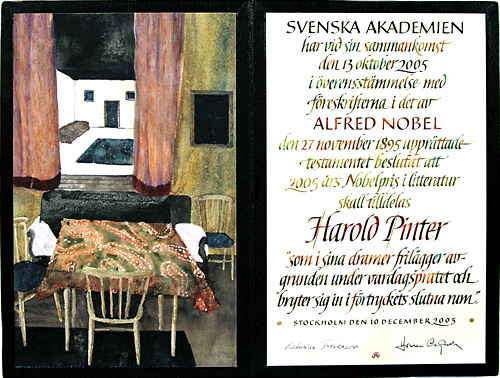 SVENSKA AKADEMIEN
har vid sin sammankomst
den 13 oktober 2005
i överensstämmelse med
föreskrifterna i det av
ALFRED NOBEL
den 27 november 1895 upprättade
testamentet beslutat att
2005 års Nobelpris i litteratur
skall tilldelas
Harold Pinter
"som i sina dramer frilägger av-
grunden under vardagspratet och
bryter sig in i förtryckets slutna rum."
STOCKHOLM DEN 10 DECEMBER 2005